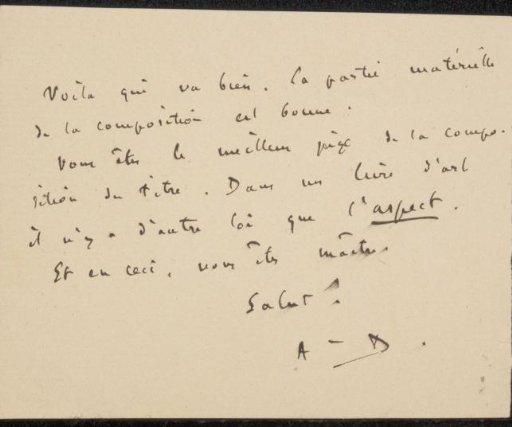 Voila qui va bien. La partie matérielle
de la composition est bonne.
Vous êtes le meilleur juge de la compo-
sition du titre. Dans un livre d'art
il n'y a d'autre loi que l'aspect.
Et en ceci, vous êtes maître.
Salut !
A - D.